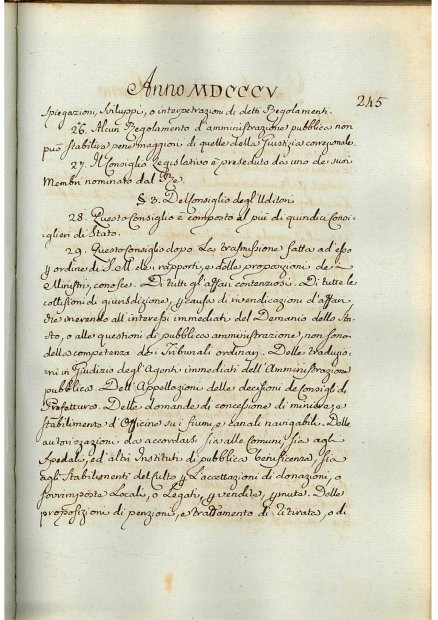 Anno MDCCCV
245
spiegazioni, sviluppi, o interpretazioni di detti Regolamenti.
26. Alcun Regolamento d'amministrazione pubblica non
può stabilire pene maggiori di quelle della Giustizia correzionale.
27. Il Consiglio Legislativo è preseduto da uno de suoi
Membri nominato dal
§ 3. Del Consiglio degl'Uditori
28. Questo Consiglio è composto al più di quindici Consi-
glieri di Stato.
29. Questo Consiglio dopo la trasmissione fatta ad esso
p ordine di S. M. de rapporti, e delle proposizioni de
Ministri, conosce. Di tutti gl'affari contenziosi. Di tutte le
collisioni di giurisdizione, p causa di rivendicazioni d'affari,
che inerendo all'interessi immediati del Demanio dello Sta-
to, o alle questioni di pubblica amministrazione, non sono
della competenza de Tribunali ordinarj. Delle traduzio-
ni in Giudizio degl'Agenti immediati dell'Amministrazione
pubblica. Dell'Appellazioni delle decisioni de Consigli di
Prefettura. Delle domande di concessione di miniere, e
stabilimento d'Officine su i fiumi, e canali navigabili. Delle
autorizzazioni da accordarsi sia alle Comuni, sia agl
Spedali, ed altri Instituti di pubblica beneficenza, sia
agli Stabilimenti del culto p l'accettazioni di donazioni, o
sovrimposte Locali, o Legati, p vendite, p mute. Delle
proposizioni di penzioni, e trattamento di ritirata, o di